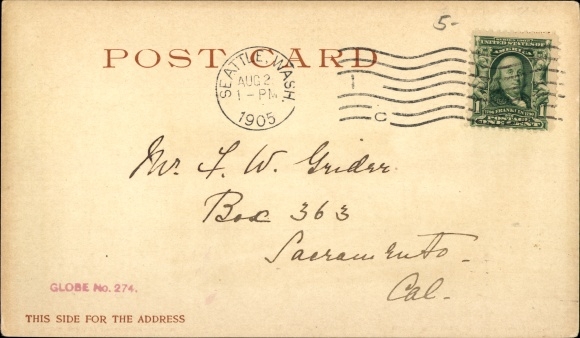 5-
POST CARD
SEATTLE, WASH.
AUG 2
1-PM
1905
C
UNITED STATES OF AMERICA
FRANKLIN
1 1
POSTAGE
ONE CENT
Mr. F. W. Grider
Box 363
Sacramento.
Cal.
GLOBE No. 274.
THIS SIDE FOR THE ADDRESS